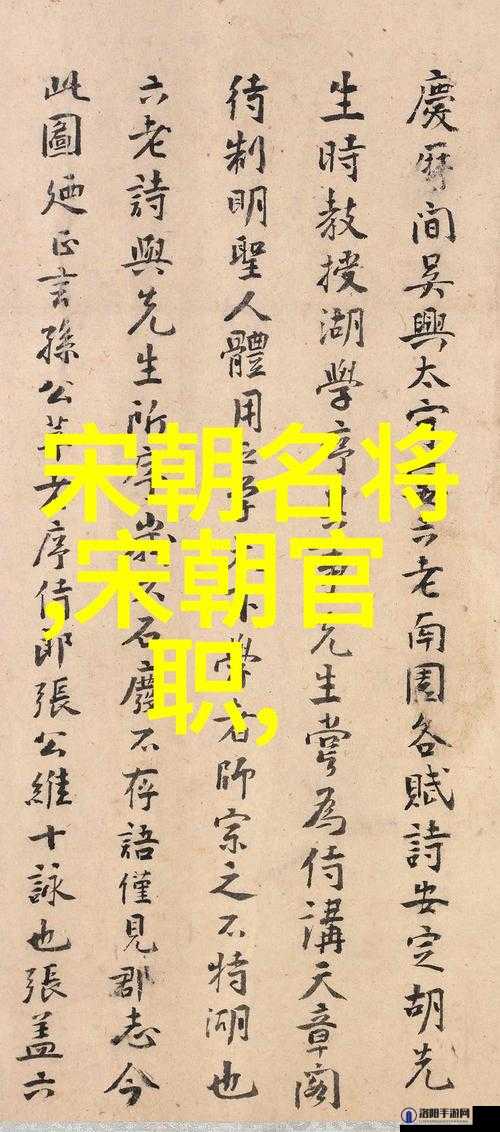 慶曆間吳興太守六老南園各賦詩安定胡先
生時教授湖學序先生嘗為侍講天章閣
待制明聖人體用學學者師宗之不特湖也
六老詩與先生所石廢不存語僅見郡志今
此圖廼正言孫公莘老序侍郎張公維十詠也張蓋六
宋朝名将
,宋朝官
职,
洛阳手游网